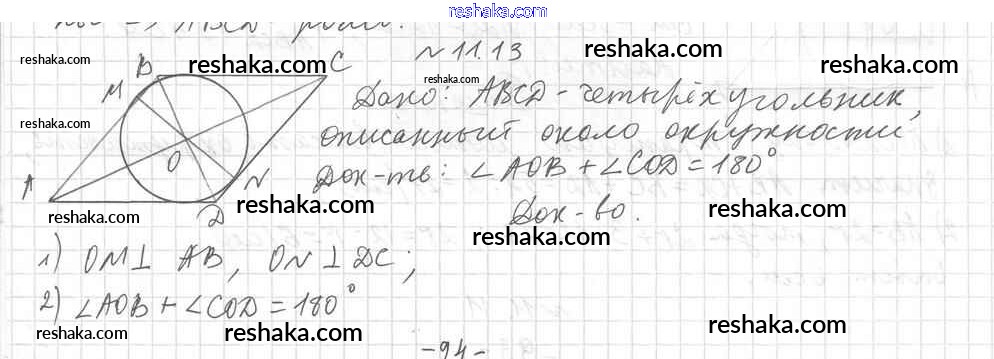 reshaka.com
=> ABCD
№ 11.13
Дано: ABCD - четырёхугольник,
описанный около окружности
Док-ть: ∠AOB + ∠COD = 180°
Док-во.
B
C
M
O
A
N
D
1) OM ⊥ AB, ON ⊥ DC;
2) ∠AOB + ∠COD = 180°
-94-
reshaka.com
reshaka.com
reshaka.com
reshaka.com
reshaka.com
reshaka.com
reshaka.com
reshaka.com
reshaka.com
reshaka.com
reshaka.com
reshaka.com
reshaka.com
reshaka.com